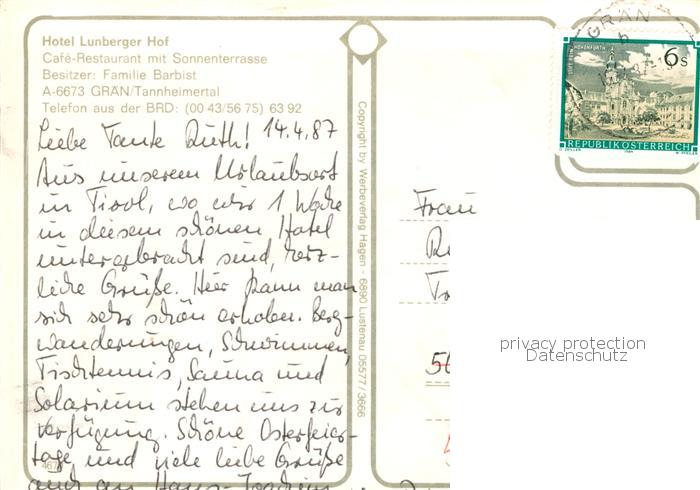 Hotel Lunberger Hof
Café-Restaurant mit Sonnenterrasse
Besitzer: Familie Barbist
A-6673 GRÄN/Tannheimertal
Telefon aus der BRD: (00 43/56 75) 63 92
Liebe Tante Ruth! 14.4.87
Aus unserem Urlaubsort
in Tirol, wo wir 1 Woche
in diesem schönen Hotel
untergebracht sind, herz-
liche Grüße. Hier kann man
sich sehr schön erholen. Berg-
wanderungen, Schwimmen,
Tischtennis, Sauna und
Solarium stehen uns zur
Verfügung. Schöne Osterfeier-
tage und viele liebe Grüße
auch an Hans-Joachim
Copyright by Werbeverlag Hagen - 6890 Lustenau 05577/3666
GRÄN
STIFT REIN-HOHENFURTH
6 S
REPUBLIK ÖSTERREICH
Frau
privacy protection
Datenschutz